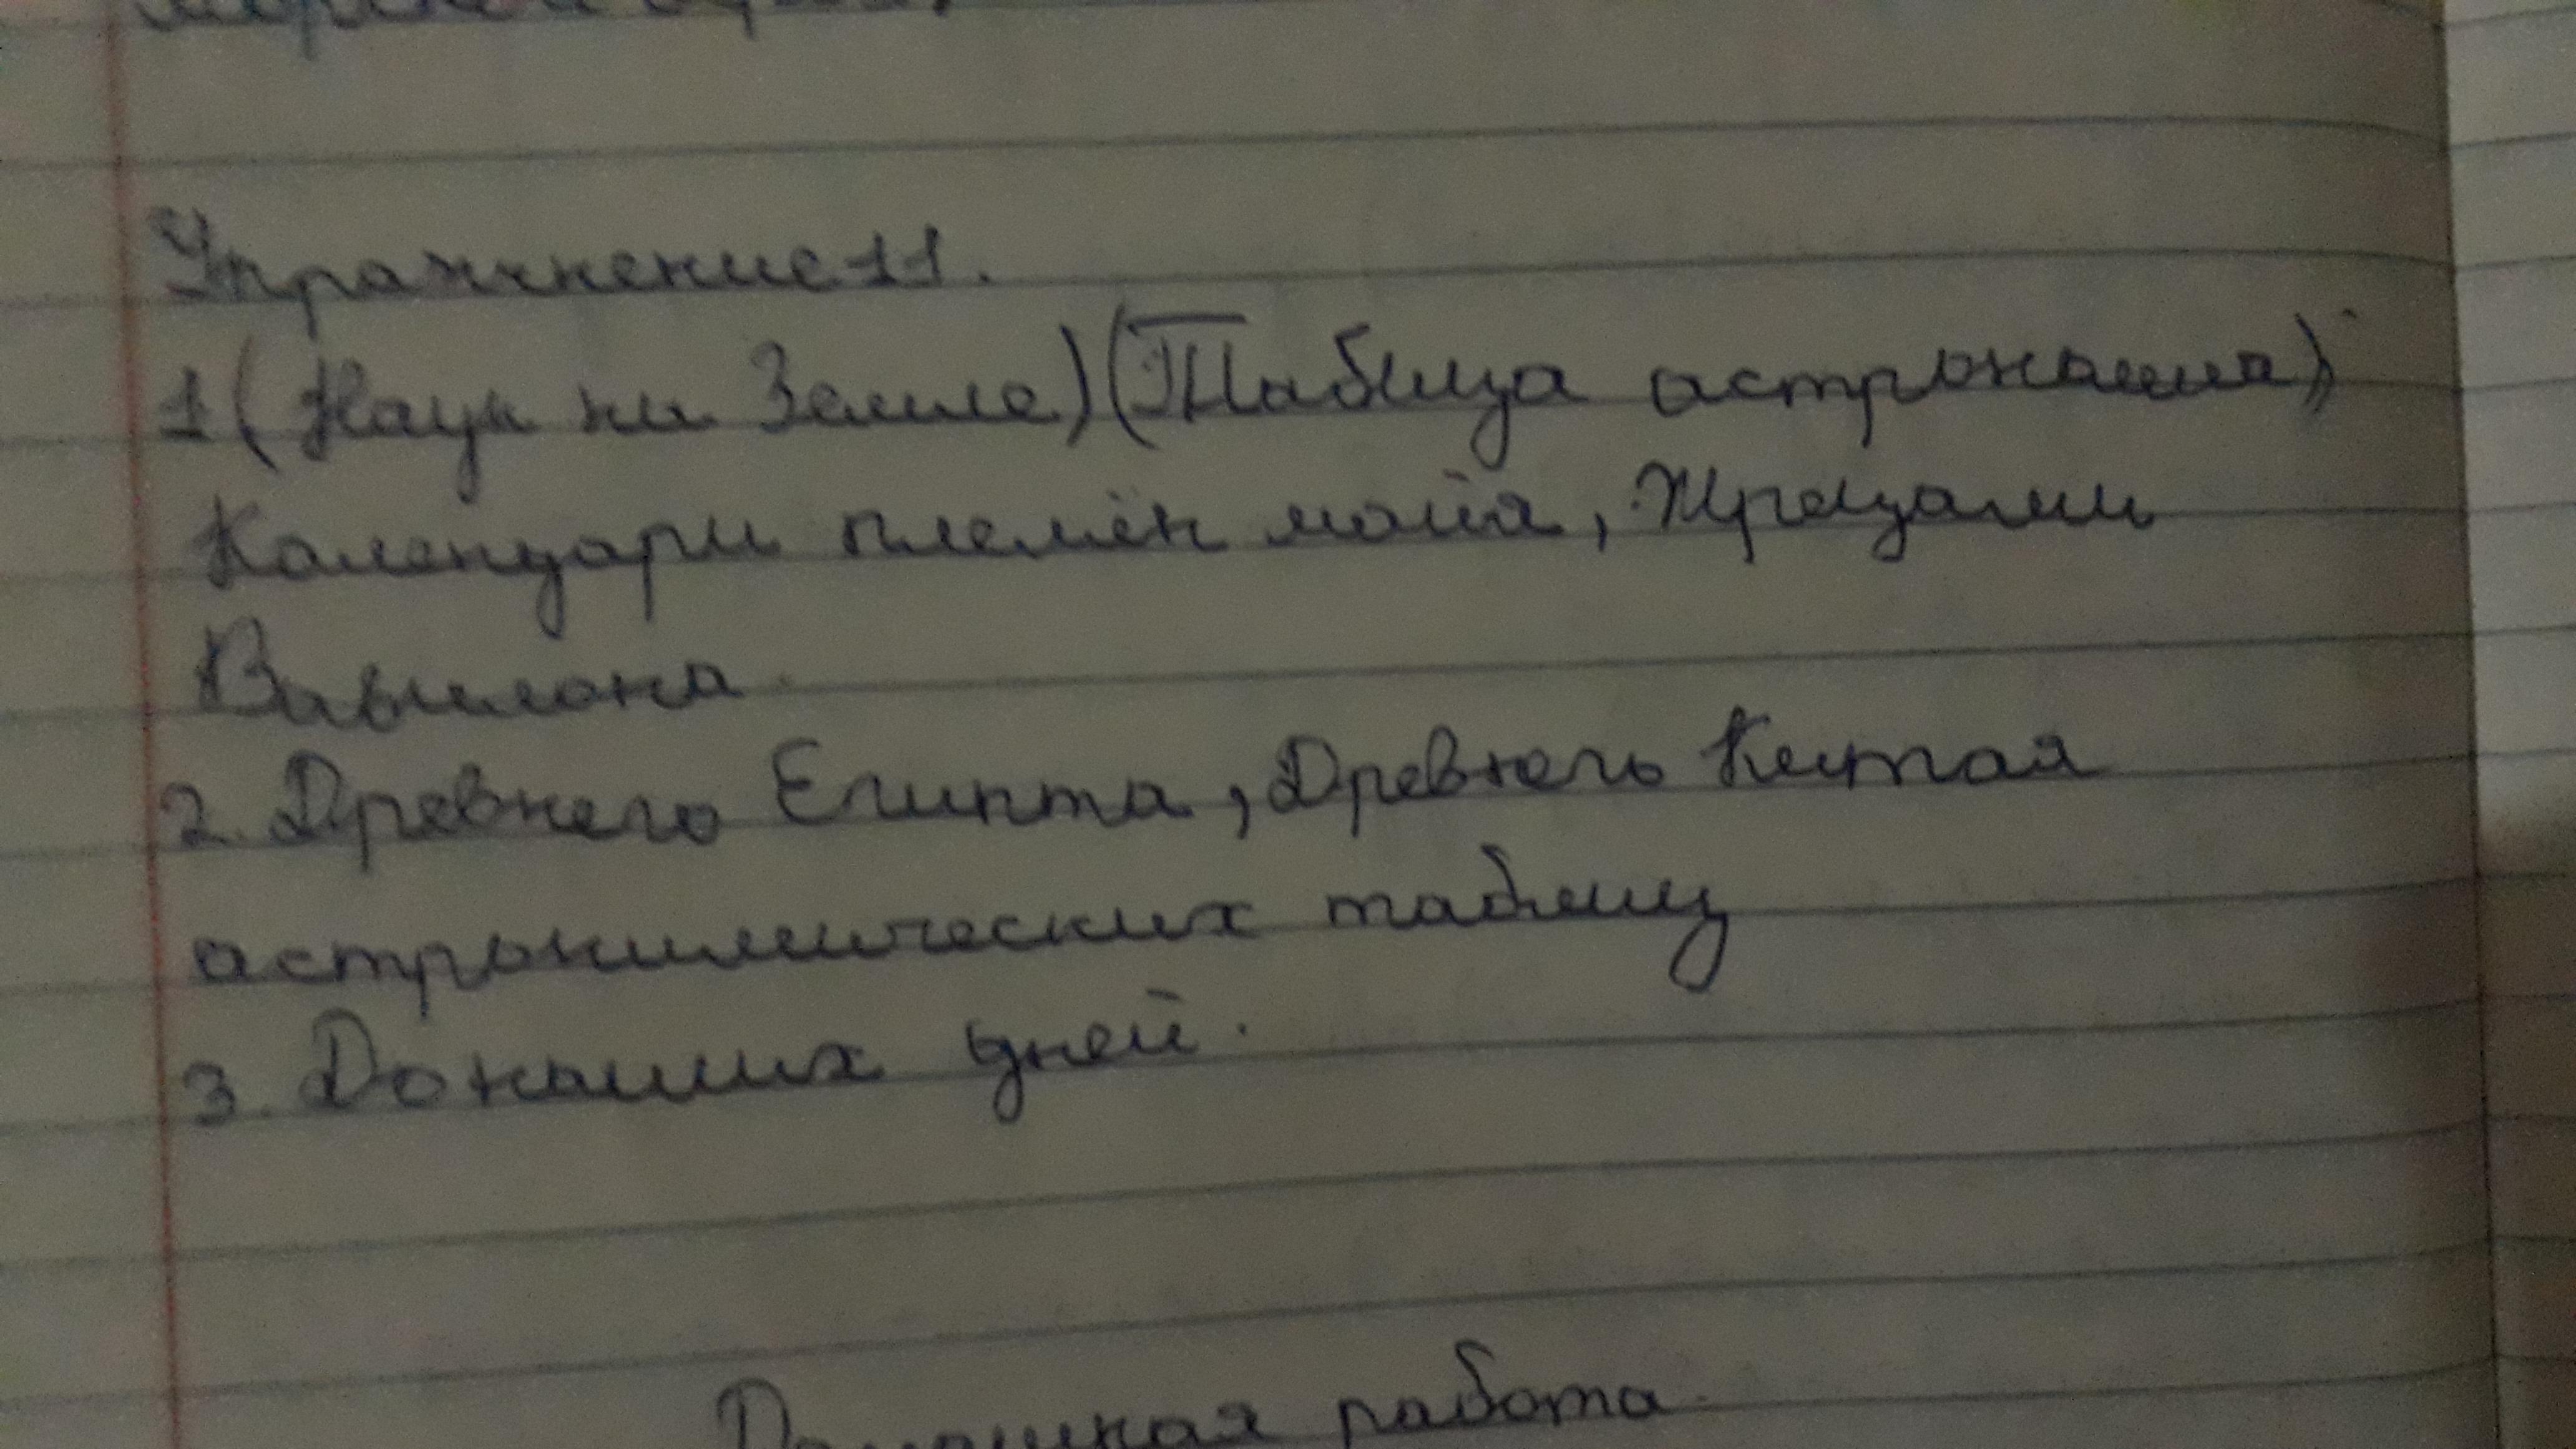 Упражнение 11.
1 (Наук на Земле) (Таблица астронамиа)
Календари племён майя, Жрецами
Вавилона.
2. Древнего Египта, Древнего Китая
астрономических таблиц
3. Донаших дней.
Домашная работа